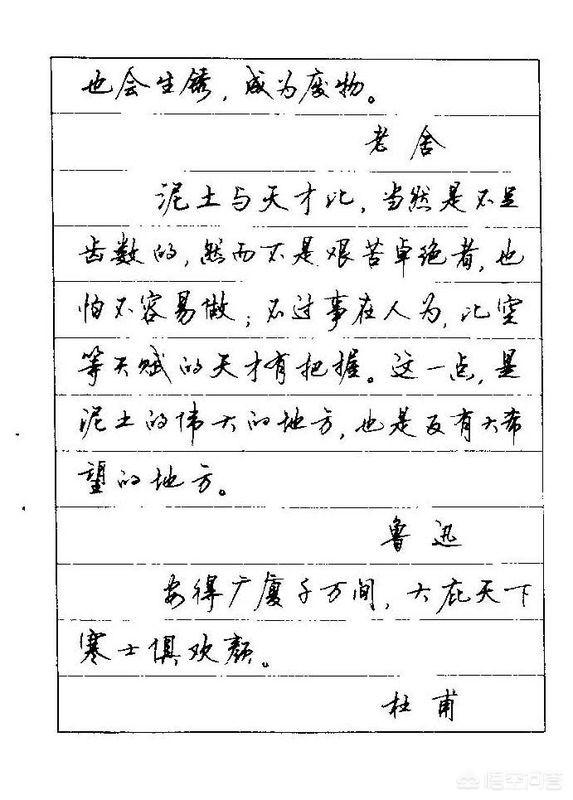 也会生锈，成为废物。
老舍
泥土与天才比，当然是不足
齿数的，然而不是艰苦卓绝者，也
怕不容易做；不过事在人为，比空
等天赋的天才有把握。这一点，是
泥土的伟大的地方，也是反有大希
望的地方。
鲁迅
安得广厦千万间，大庇天下
寒士俱欢颜。
杜甫
悟空问答